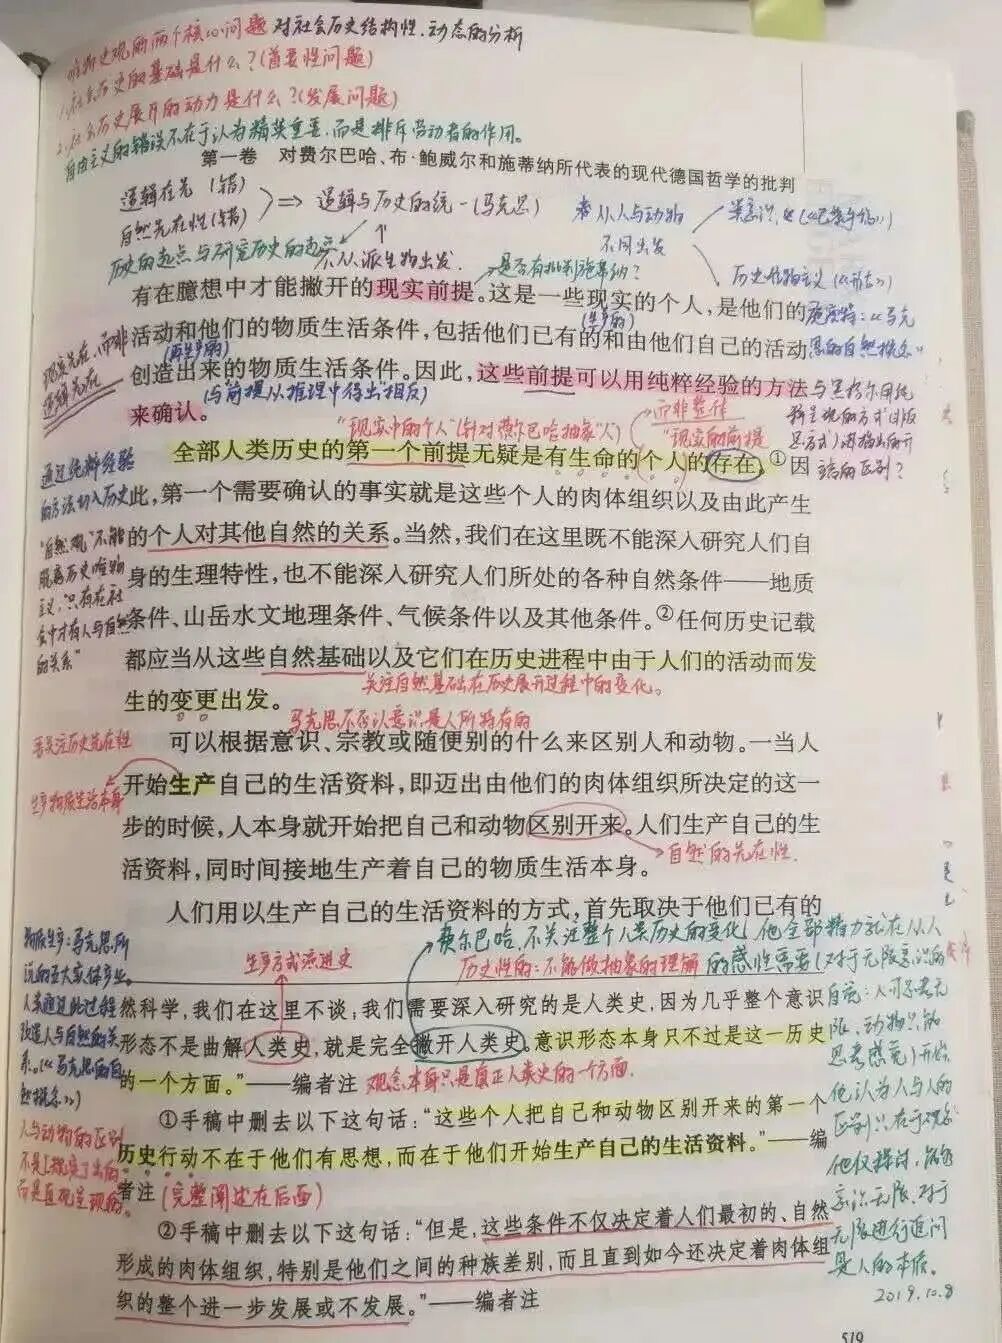 唯物史观的两个核心问题 对社会历史结构性、动态的分析
1.社会历史的基础是什么？(首要性问题)
2.社会历史展开的动力是什么？(发展问题)
自由主义的错误不在于认为精英重要，而是排斥劳动者的作用。
第一卷 对费尔巴哈、布·鲍威尔和施蒂纳所代表的现代德国哲学的批判
逻辑在先（错）
自然先在性（错）
⇒ 逻辑与历史的统一（马克思）
历史的起点与研究历史的起点
不从派生物出发.
是否有批判施蒂纳？
从人与动物
不同出发
类意识，
历史唯物主义
有在臆想中才能撇开的现实前提。这是一些现实的个人，是他们的
(生产的)
活动和他们的物质生活条件，包括他们已有的和由他们自己的活动
(再生产的)
创造出来的物质生活条件。因此，这些前提可以用纯粹经验的方法
(与"前提从推理中得出"相反)
来确认。
现实先在，而非
逻辑先在
施密特：《马克
思的自然概念》
与黑格尔用纯
"现实中的个人"(针对费尔巴哈抽象"人")
而非整体
"现实的前提
全部人类历史的第一个前提无疑是有生命的个人的存在。①因
此，第一个需要确认的事实就是这些个人的肉体组织以及由此产生
的个人对其他自然的关系。当然，我们在这里既不能深入研究人们自
身的生理特性，也不能深入研究人们所处的各种自然条件——地质
条件、山岳水文地理条件、气候条件以及其他条件。②任何历史记载
都应当从这些自然基础以及它们在历史进程中由于人们的活动而发
生的变更出发。
关注自然基础在历史展开过程中的变化。
通过纯粹经验
的方法切入历史
"自然观"不能
脱离历史唯物
主义，只有在社
会中才有人与自然
的关系"
马克思不否认意识是人所特有的
可以根据意识、宗教或随便别的什么来区别人和动物。一当人
开始生产自己的生活资料，即迈出由他们的肉体组织所决定的这一
步的时候，人本身就开始把自己和动物区别开来。人们生产自己的生
活资料，同时间接地生产着自己的物质生活本身。
关注历史先在性
生产物质生活本身
自然的先在性.
人们用以生产自己的生活资料的方式，首先取决于他们已有的
费尔巴哈，不关注整个人类历史的变化，他全部精力就在从人
的感性需要(对于无限意识的
生产方式演进史
历史性的：不能做抽象的理解
然科学，我们在这里不谈；我们需要深入研究的是人类史，因为几乎整个意识
形态不是曲解人类史，就是完全撇开人类史。意识形态本身只不过是这一历史
的一个方面。"——编者注
观念本身只是真正人类史的一方面.
①手稿中删去以下这句话："这些个人把自己和动物区别开来的第一个
历史行动不在于他们有思想，而在于他们开始生产自己的生活资料。"——编
者注
(完整阐述在后面)
②手稿中删去以下这句话："但是，这些条件不仅决定着人们最初的、自然
形成的肉体组织，特别是他们之间的种族差别，而且直到如今还决定着肉体组
织的整个进一步发展或不发展。"——编者注
物质生产：马克思所
说的五大实体产业。
人类通过此过程
改造人与自然的关
系。
人与动物的区别
而是直观呈现的。
自觉：人可思考无
限，动物只能
思考感觉)开始
他认为人与人的
区别只在于观念
他仅探讨，能够
意识无限、对于
无限进行追问
是人的本质。
2019.10.8
519